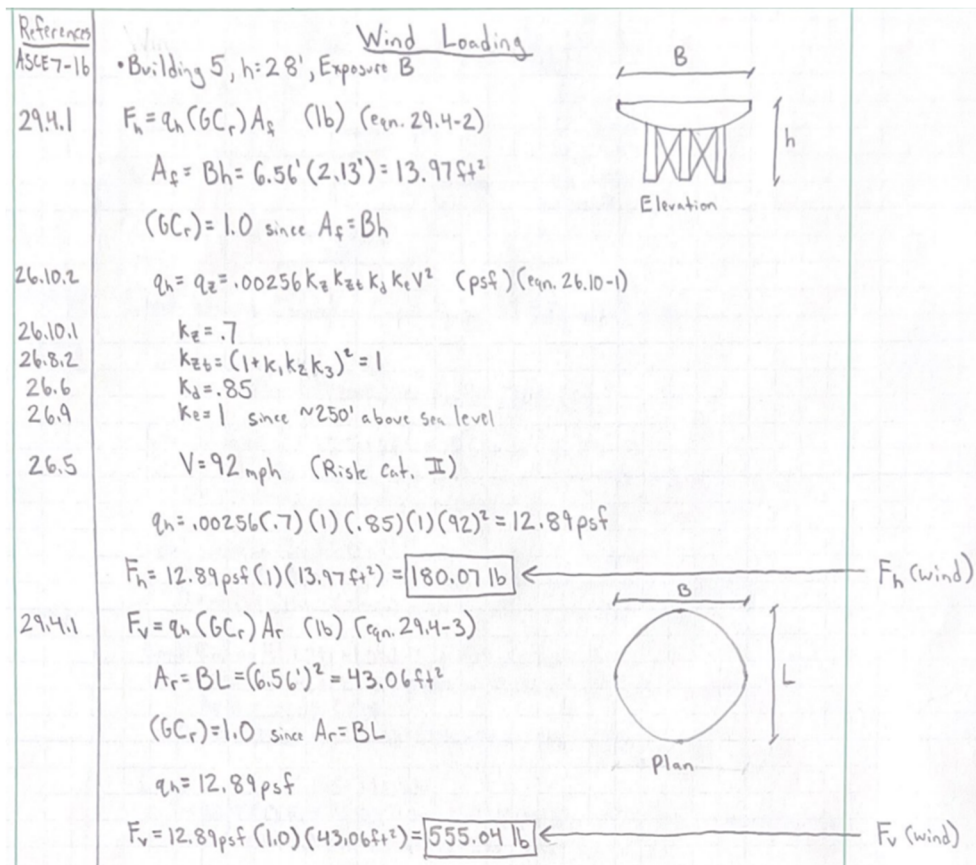 References
Wind Loading
ASCE7-16
•Building 5, h=28', Exposure B
B
29.4.1
Fₕ=qₕ(GCᵣ)A_f (lb) (eqn. 29.4-2)
h
A_f=Bh=6.56'(2.13')=13.97ft²
Elevation
(GCᵣ)=1.0 since A_f=Bh
26.10.2
qₕ=q_z=.00256K_zK_ztK_dK_eV² (psf)(eqn. 26.10-1)
26.10.1
K_z=.7
26.8.2
K_zt=(1+K₁K₂K₃)²=1
26.6
K_d=.85
26.9
K_e=1 since ~250' above sea level
26.5
V=92 mph (Risk cat. II)
qₕ=.00256(.7)(1)(.85)(1)(92)²=12.89psf
Fₕ=12.89psf(1)(13.97ft²)=180.07 lb
Fₕ(wind)
B
29.4.1
Fᵥ=qₕ(GCᵣ)Aᵣ (lb) (eqn. 29.4-3)
Aᵣ=BL=(6.56')²=43.06ft²
L
(GCᵣ)=1.0 since Aᵣ=BL
Plan
qₕ=12.89psf
Fᵥ=12.89psf(1.0)(43.06ft²)=555.04 lb
Fᵥ(wind)